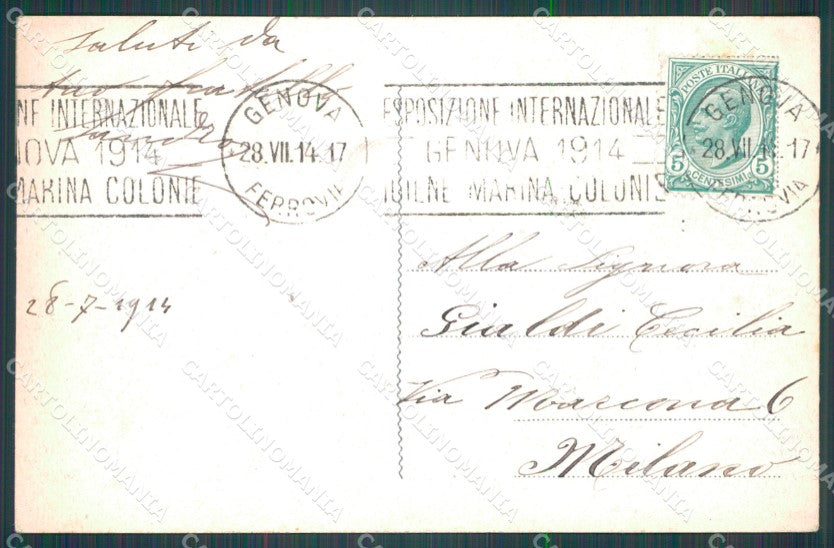 Saluti da
tuo fratello
NE INTERNAZIONALE
NOVA 1914
MARINA COLONIE
GENOVA
28.VII.14.17
FERROVIA
ESPOSIZIONE INTERNAZIONALE
GENOVA 1914
IGIENE MARINA COLONIE
POSTE ITALIANE
5 CENTESIMI 5
GENOVA
28.VII.14.17
FERROVIA
28-7-1914
Alla Signora
Gialdi Cecilia
Via Mascona 6
Milano
CARTOLINOMANIA